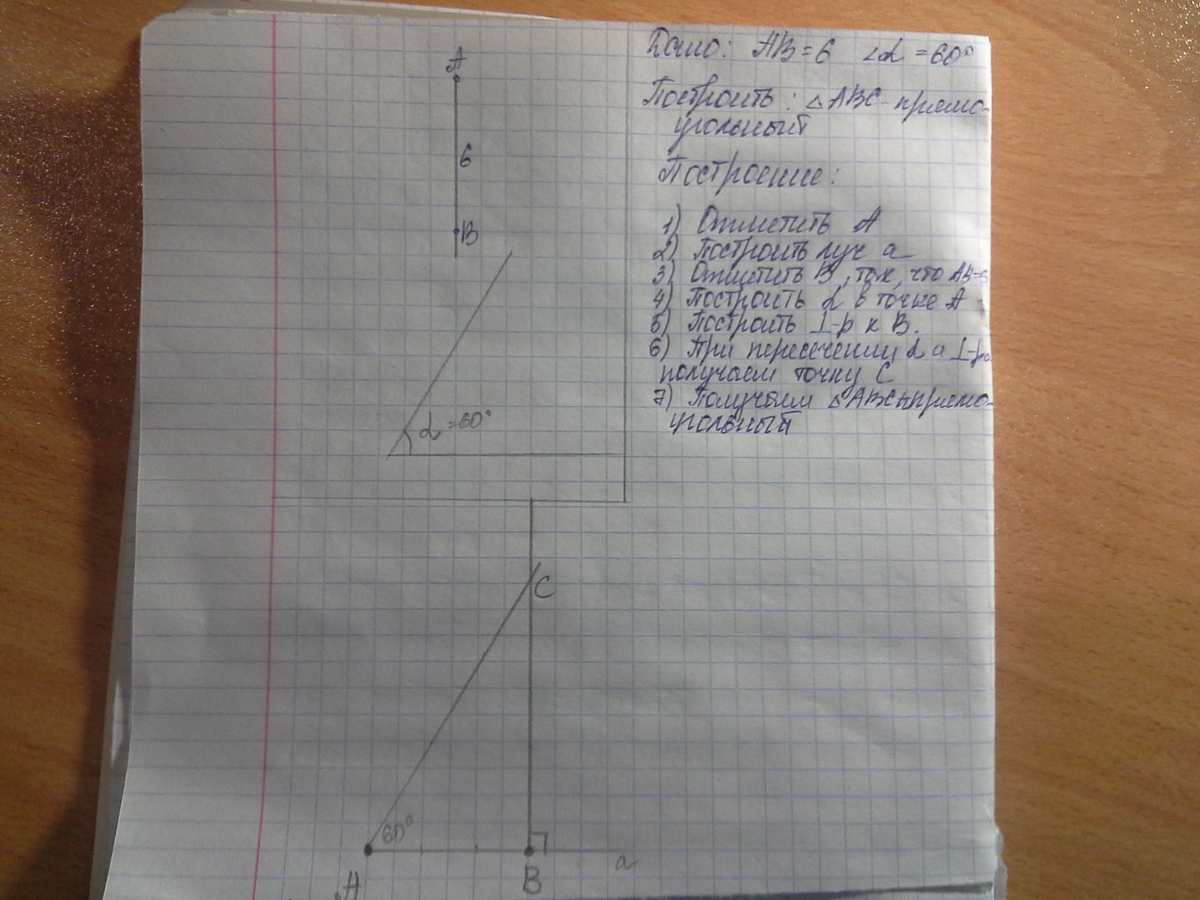 Дано: AB = 6 ∠α = 60°
Построить: △ABC - прямо-
угольный
Построение:
1) Отметить A
2) Построить луч a
3) Отметить B, так, что AB=6
4) Построить α в точке A
5) Построить ⊥-р к B.
6) При пересечении α и ⊥-ра
получаем точку C
7) Получаем △ABC-прямо-
угольный
A
6
B
α = 60°
C
60°
A
B
a